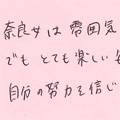 奈良女は雰囲気
でも とても楽しい
自分の努力を信じ